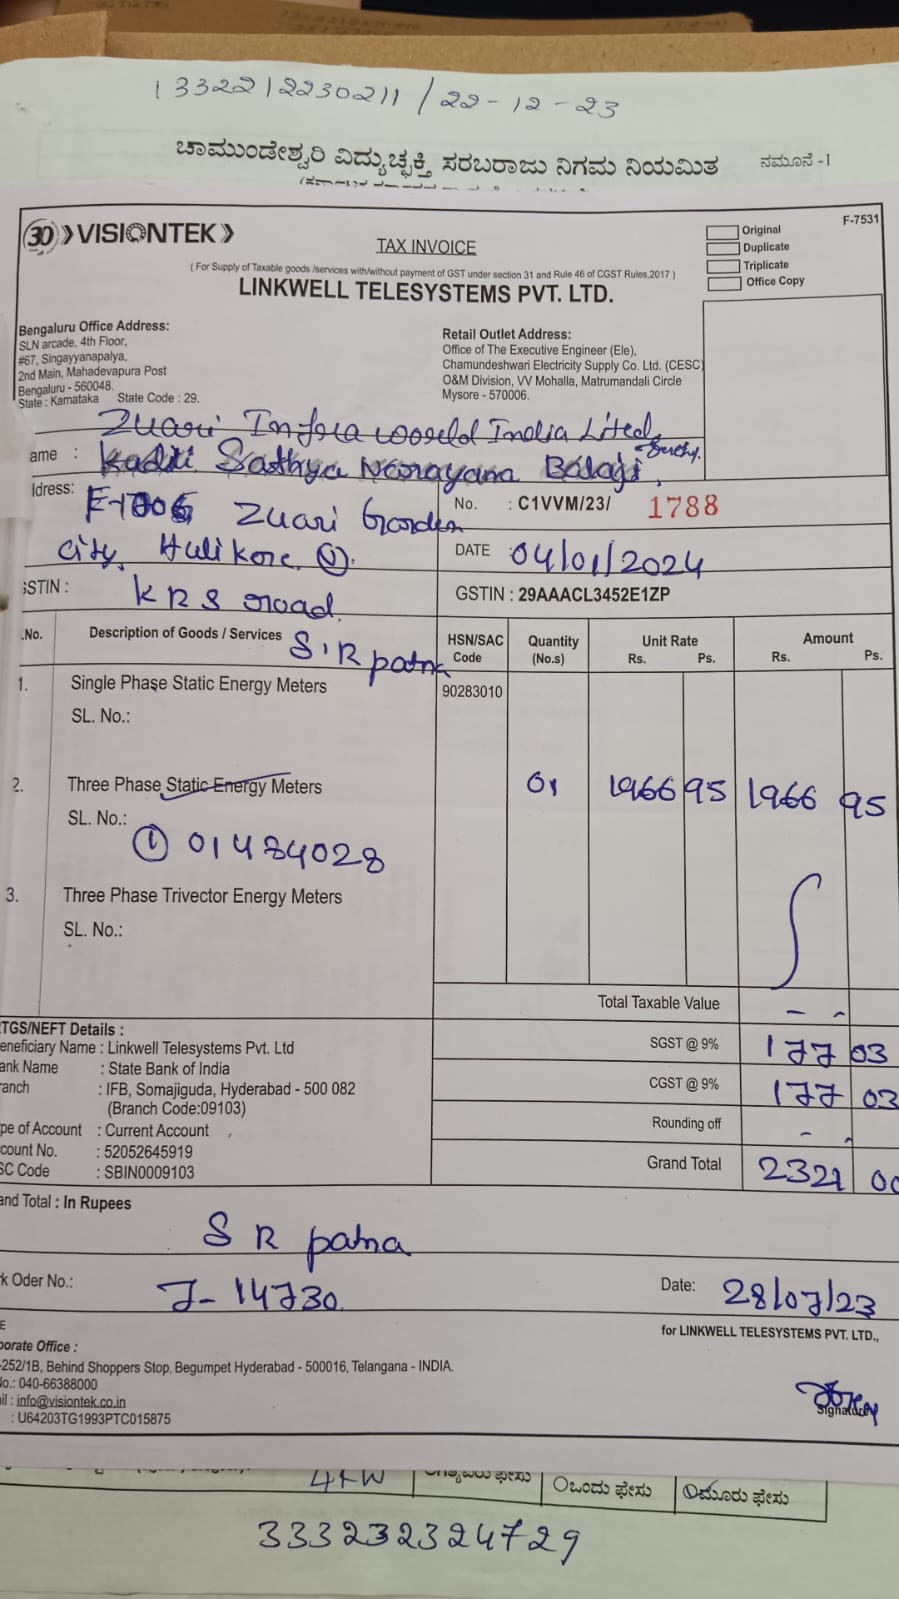 1332212230211 / 22-12-23
ಚಾಮುಂಡೇಶ್ವರಿ ವಿದ್ಯುಚ್ಛಕ್ತಿ ಸರಬರಾಜು ನಿಗಮ ನಿಯಮಿತ ನಮೂನೆ -1
F-7531
30 VISIONTEK
TAX INVOICE
Original
Duplicate
Triplicate
Office Copy
( For Supply of Taxable goods /services with/without payment of GST under section 31 and Rule 46 of CGST Rules,2017 )
LINKWELL TELESYSTEMS PVT. LTD.
Bengaluru Office Address:
SLN arcade, 4th Floor,
#67, Singayyanapalya,
2nd Main, Mahadevapura Post
Bengaluru - 560048.
State : Karnataka State Code : 29.
Retail Outlet Address:
Office of The Executive Engineer (Ele),
Chamundeshwari Electricity Supply Co. Ltd. (CESC)
O&M Division, VV Mohalla, Matrumandali Circle
Mysore - 570006.
Zuari Infra World India Lited
ame : Sathya Narayana Balaji
ldress: Zuari Garden
City, Hulikere (V).
KRS road
No. : C1VVM/23/ 1788
DATE 04/01/2024
GSTIN :
GSTIN : 29AAACL3452E1ZP
.No. Description of Goods / Services HSN/SAC Code Quantity (No.s) Unit Rate Rs. Ps. Amount Rs. Ps.
S.R patna
1. Single Phase Static Energy Meters 90283010
SL. No.:
2. Three Phase Static Energy Meters 01 1966 95 1966 95
SL. No.:
① 01484028
3. Three Phase Trivector Energy Meters
SL. No.:
Total Taxable Value - -
TGS/NEFT Details :
eneficiary Name : Linkwell Telesystems Pvt. Ltd
ank Name : State Bank of India
ranch : IFB, Somajiguda, Hyderabad - 500 082
(Branch Code:09103)
pe of Account : Current Account
count No. : 52052645919
SC Code : SBIN0009103
SGST @ 9% 177 03
CGST @ 9% 177 03
Rounding off - -
Grand Total 2321 00
and Total : In Rupees
S R patna
k Oder No.: J-14730
Date: 28/07/23
for LINKWELL TELESYSTEMS PVT. LTD.,
porate Office :
-252/1B, Behind Shoppers Stop, Begumpet Hyderabad - 500016, Telangana - INDIA.
No.: 040-66388000
il : info@visiontek.co.in
: U64203TG1993PTC015875
Signatory
4KW
ಒಂದು ಫೇಸು
ಮೂರು ಫೇಸು
333232324729